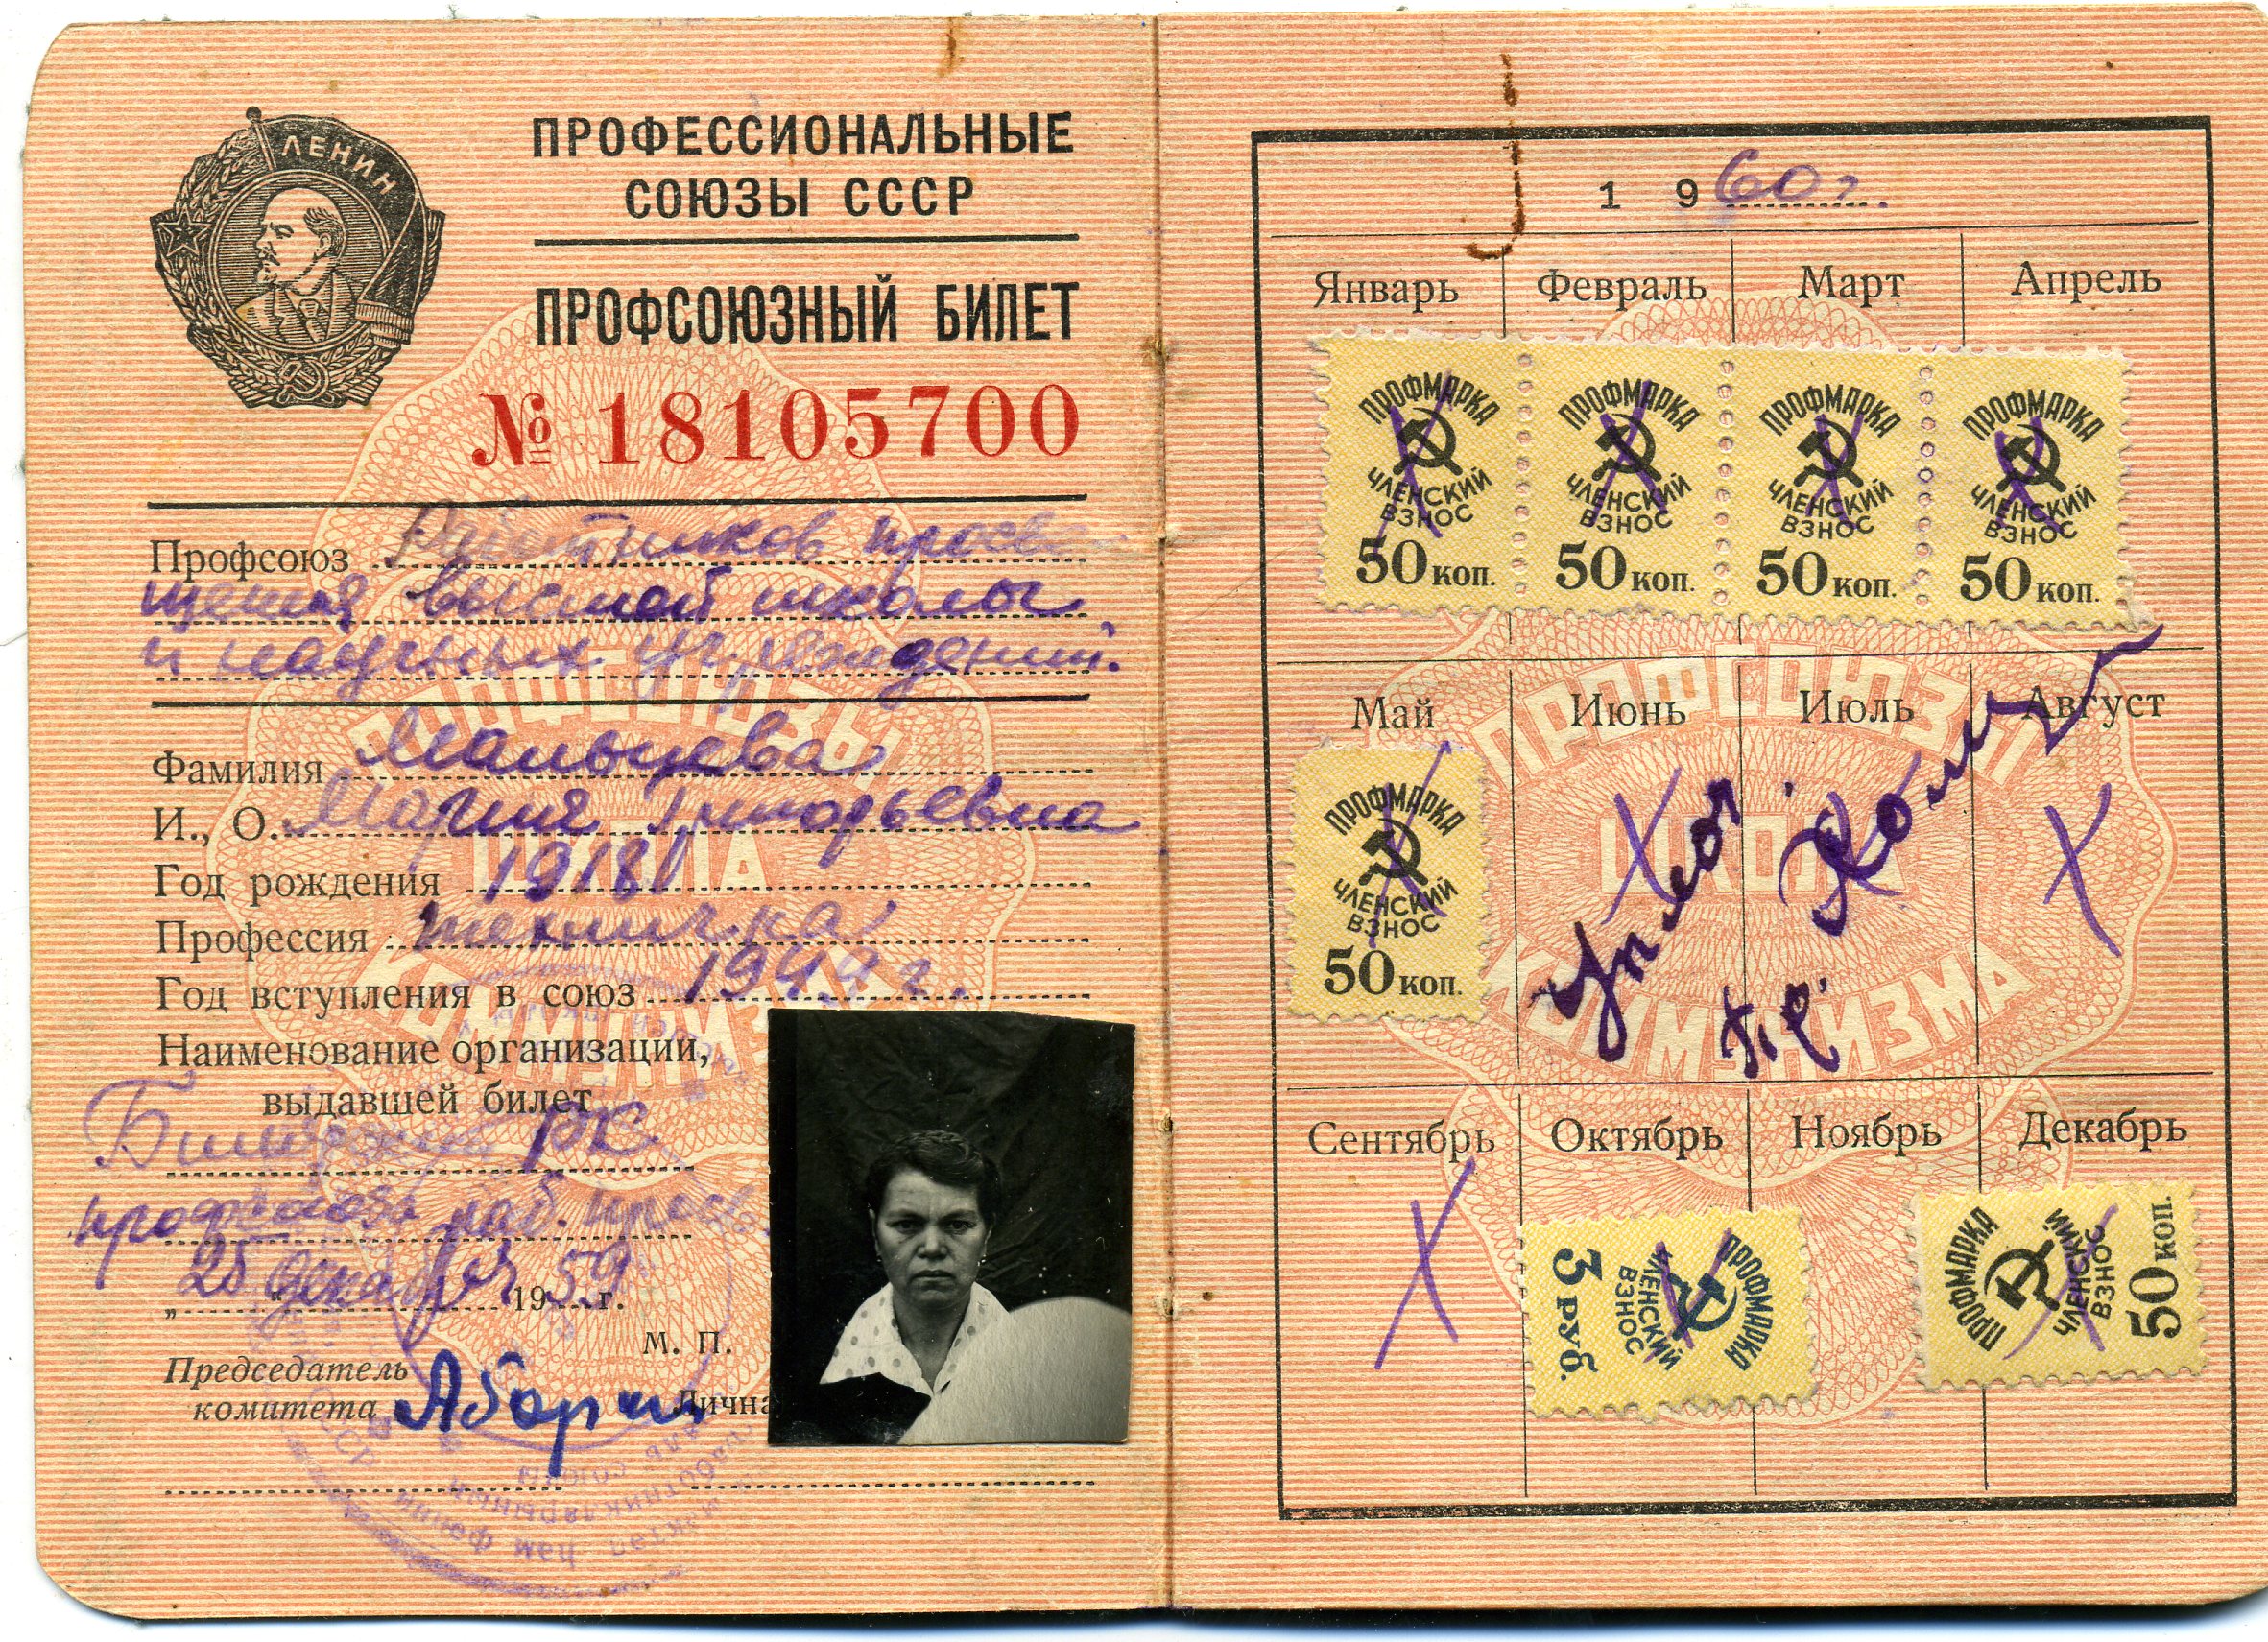 ЛЕНИН
ПРОФЕССИОНАЛЬНЫЕ
СОЮЗЫ СССР
ПРОФСОЮЗНЫЙ БИЛЕТ
№ 18105700
Профсоюз Работников просве-
щения высшей школы
и научных учреждений.
Фамилия Мальцева
И., О. Мария Григорьевна
Год рождения 1918
Профессия техничка
Год вступления в союз 1944 г.
Наименование организации,
выдавшей билет
РК
профсоюза раб. просв.
„25" декабря 1959 г.
М. П.
Председатель
комитета
Лична
ПРОФСОЮЗЫ
ШКОЛА
КОММУНИЗМА
1960 г.
Январь Февраль Март Апрель
ПРОФМАРКА ПРОФМАРКА ПРОФМАРКА ПРОФМАРКА
ЧЛЕНСКИЙ ЧЛЕНСКИЙ ЧЛЕНСКИЙ ЧЛЕНСКИЙ
ВЗНОС ВЗНОС ВЗНОС ВЗНОС
50 коп. 50 коп. 50 коп. 50 коп.
Май Июнь Июль Август
ПРОФМАРКА
ЧЛЕНСКИЙ
ВЗНОС
50 коп.
ПРОФСОЮЗЫ
ШКОЛА
КОММУНИЗМА
Сентябрь Октябрь Ноябрь Декабрь
ПРОФМАРКА
ЧЛЕНСКИЙ
ВЗНОС
3 руб.
ПРОФМАРКА
ЧЛЕНСКИЙ
ВЗНОС
50 коп.